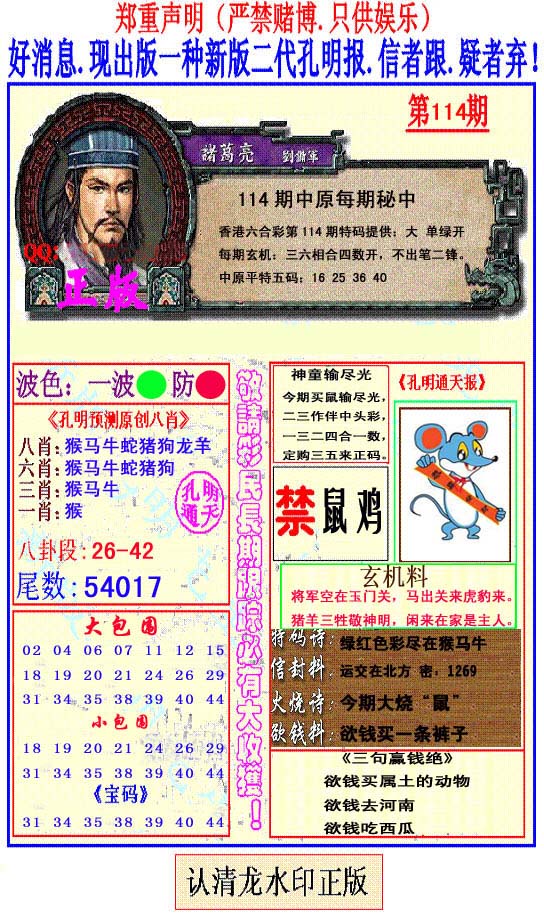 郑重声明（严禁赌博.只供娱乐）
好消息.现出版一种新版二代孔明报.信者跟.疑者弃!
第114期
諸葛亮 劉備軍
114 期中原每期秘中
香港六合彩第114期特码提供：大 单绿开
每期玄机：三六相合四数开，不出笔二锋。
中原平特五码：16 25 36 40
QQ:
正版
波色：一波 防
《孔明预测原创八肖》
八肖:猴马牛蛇猪狗龙羊
六肖:猴马牛蛇猪狗
三肖:猴马牛
一肖:猴
孔明
通天
八卦段:26-42
尾数:54017
大包围
02 04 06 07 11 12 15
18 19 20 21 24 26 29
31 34 35 38 39 40 44
小包围
18 19 20 21 24 26 29
31 34 35 38 39 40 44
《宝码》
31 34 35 38 39 40 44
敬請彩民長期跟踪必有大收獲！
神童输尽光
今期买鼠输尽光，
二三作伴中头彩，
一三二四合一数，
定购三五来正码。
《孔明通天报》
禁鼠鸡
玄机料
将军空在玉门关，马出关来虎豹来。
猪羊三牲敬神明，闲来在家是主人。
特码诗:绿红色彩尽在猴马牛
信封料:运交在北方 密：1269
火烧诗:今期大烧“鼠”
欲钱料:欲钱买一条裤子
《三句赢钱绝》
欲钱买属土的动物
欲钱去河南
欲钱吃西瓜
认清龙水印正版